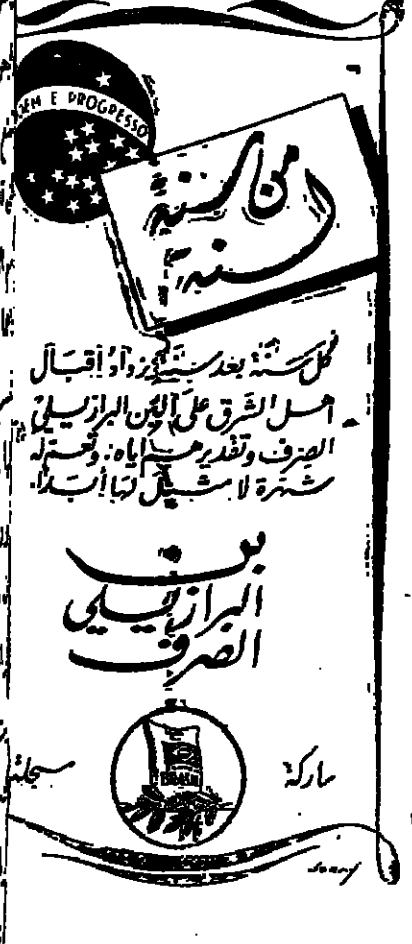 DEM E PROGRESSO
من سنة
لسنة
كل سَنة بَعد سَنة يزدادُ إقبَال
أهل الشرق على البُن البرازيلي
الصِرف وتقديرهم اياه: وتعم له
شهرة لا مثيل لها أبَدًا.
بن
البرازيلي
الصرف
ماركة
سجلة